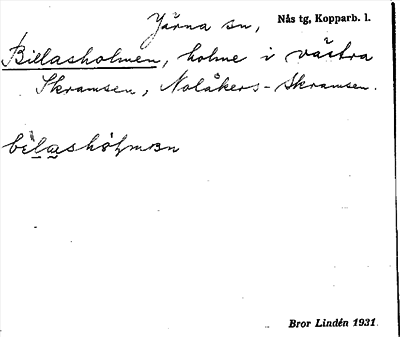 Järna sn, Nås tg, Kopparb. l.
Billasholmen, holme i västra
Skramsen, Nolåkers-Skramsen.
Bror Lindén 1931.